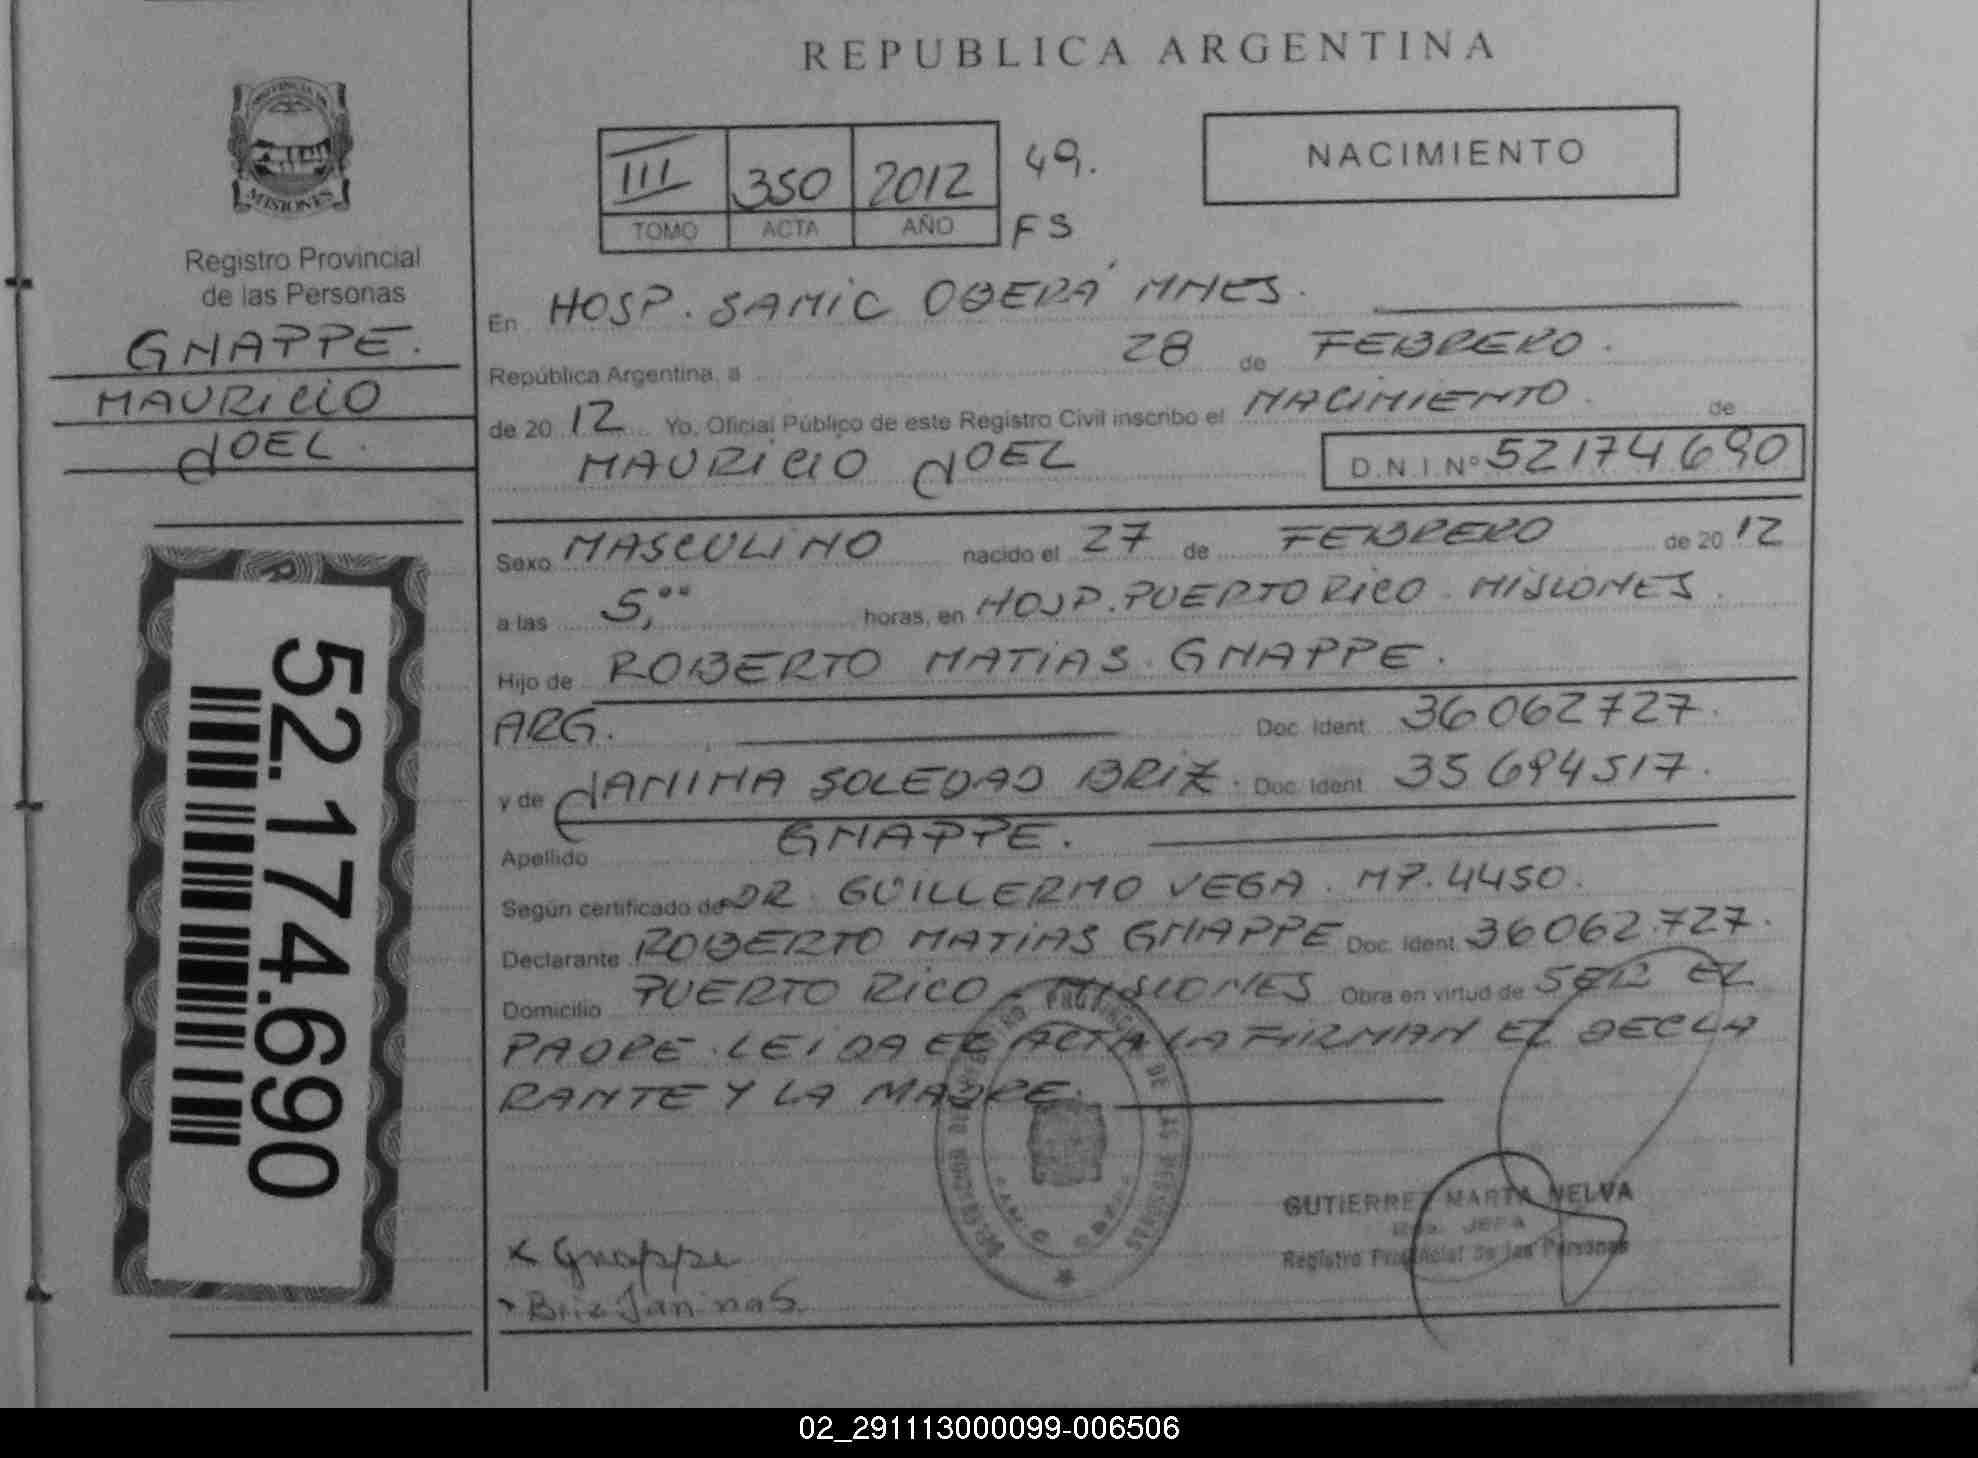 REPUBLICA ARGENTINA
MISIONES
Registro Provincial
de las Personas
GNAPPE.
MAURICIO
JOEL.
52.174.690
III 350 2012 49.
TOMO ACTA AÑO FS
NACIMIENTO
En HOSP. SAMIC OBERÁ MNES.
República Argentina, a 28 de FEBRERO.
de 2012 Yo, Oficial Público de este Registro Civil inscribo el NACIMIENTO. de
MAURICIO JOEL D.N.I.Nº 52174690
Sexo MASCULINO nacido el 27 de FEBRERO de 2012
a las 5,00 horas, en HOSP. PUERTO RICO. MISIONES.
Hijo de ROBERTO MATIAS. GNAPPE.
ARG. Doc. Ident. 36062727.
y de JANINA SOLEDAD BRIZ. Doc. Ident. 35694517.
Apellido GNAPPE.
Según certificado de DR. GUILLERMO VEGA. MP. 4450.
Declarante ROBERTO MATIAS GNAPPE Doc. Ident. 36062.727.
Domicilio PUERTO RICO - MISIONES Obra en virtud de SER EL
PADRE. LEIDA EL ACTA LA FIRMAN EL DECLA
RANTE Y LA MADRE.
GUTIERREZ MARTA NELVA
JEFA
Registro Provincial de las Personas
x Gnappe
Briz Janina S.
02_291113000099-006506